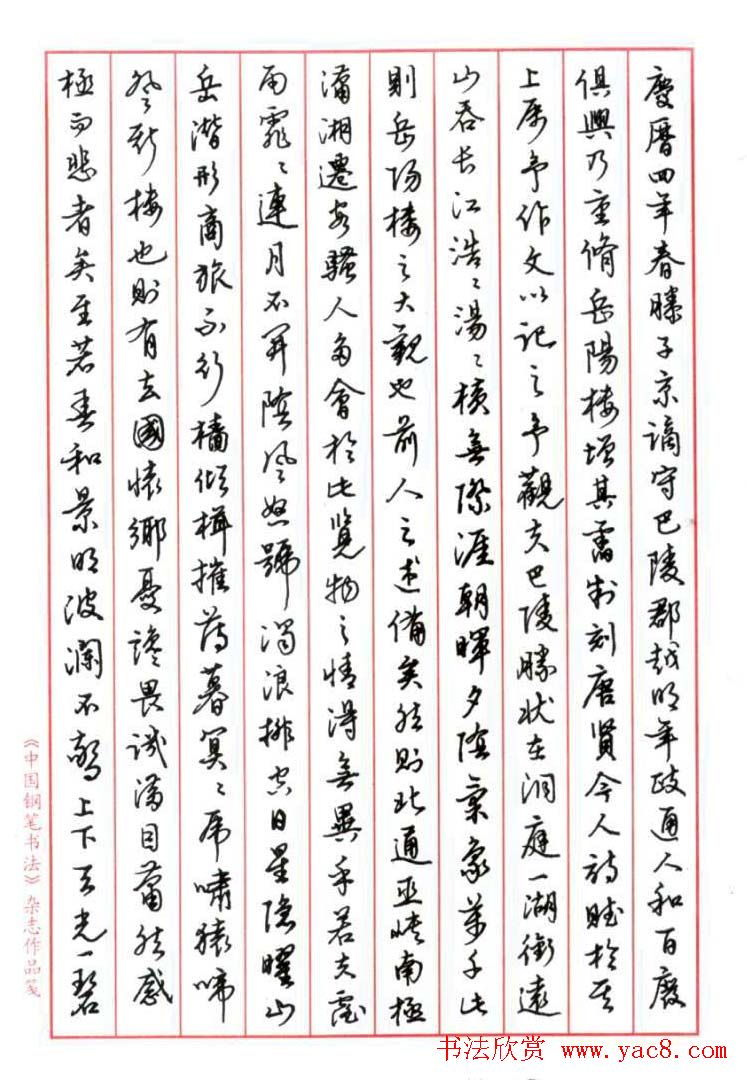 慶曆四年春滕子京謫守巴陵郡越明年政通人和百廢
俱興乃重脩岳陽樓增其舊制刻唐賢今人詩賦於其
上屬予作文以記之予觀夫巴陵勝狀在洞庭一湖銜遠
山吞长江浩々湯々橫無際涯朝暉夕陰氣象萬千此
則岳陽樓之大觀也前人之述備矣然則北通巫峽南極
瀟湘遷客騷人多會於此覽物之情得無異乎若夫霪
雨霏々連月不開陰風怒號濁浪排空日星隱曜山
岳潛形商旅不行檣傾楫摧薄暮冥々虎嘯猿啼
登斯樓也則有去國懷鄉憂讒畏譏滿目蕭然感
極而悲者矣至若春和景明波瀾不驚上下天光一碧
《中国钢笔书法》杂志作品笺
书法欣赏 www.yac8.com